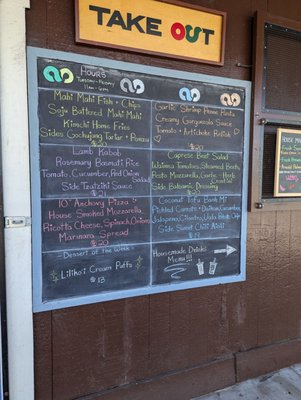 TAKE OUT
Hours
Tuesday - Friday
11am - 6pm
Mahi Mahi Fish + Chips
Soy Battered Mahi Mahi
Kimchi Home Fries
Sides Gochujang Tartar + Ponzu
$20
Lamb Kabob
Rosemary Basmati Rice
Tomato, Cucumber, Red Onion
Salad
Side Tzatziki Sauce
10" Anchovy Pizza
House Smoked Mozzarella,
Ricotta Cheese, Spinach, Onions
Marinara Sauce
$20
Dessert of the Week
Lilikoi Cream Puffs
$13
Garlic Shrimp Home Penne
Creamy Gorgonzola Sauce
Tomato + Artichoke Relish
$20
Caprese Beef Salad
Waimea Tomatoes, Steamed Beets,
Pesto Mozzarella, Garlic - Herb
Side Balsamic Dressing
Coconut Tofu Banh Mi
Pickled Carrots + Daikon, Cucumber,
Side Sweet Chili Aioli
Homemade Drinks
Menu!!!
MENU